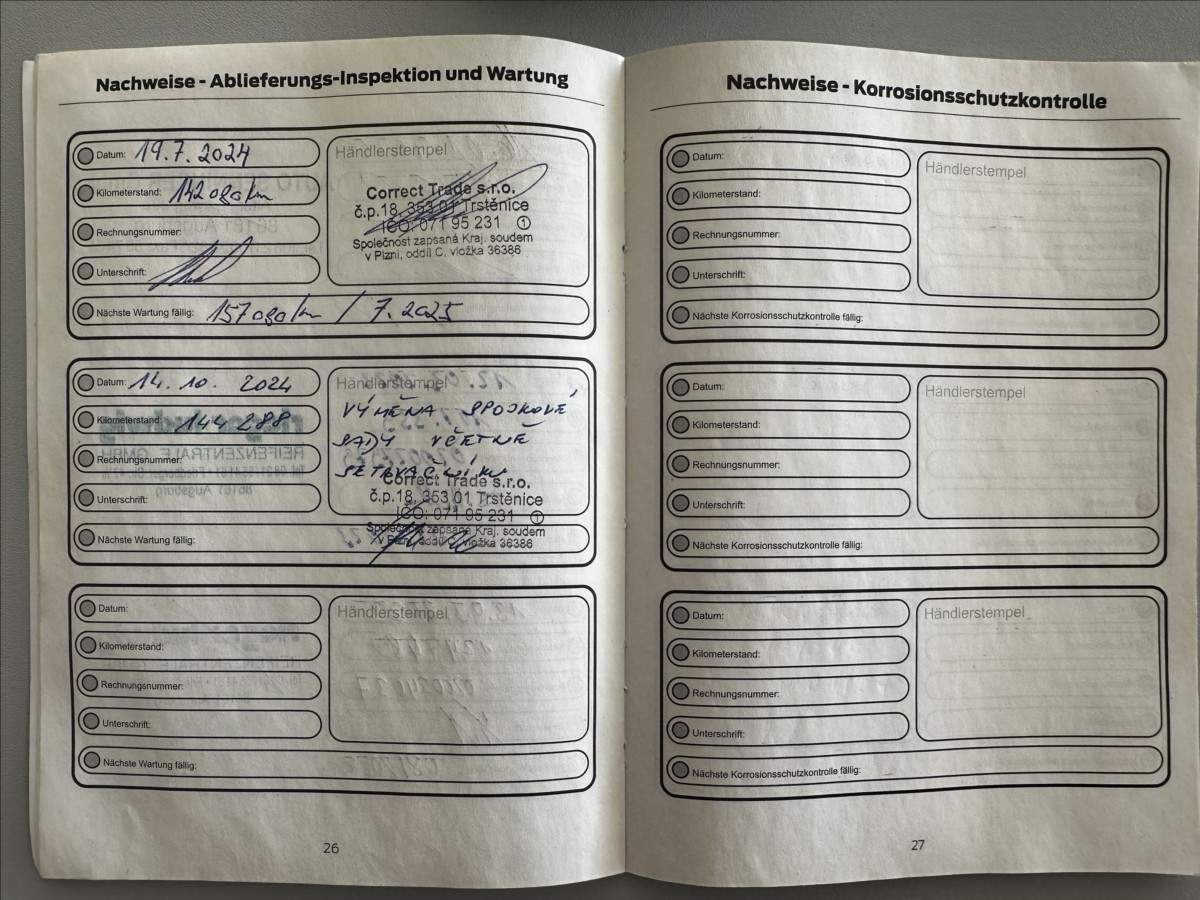 Nachweise - Ablieferungs-Inspektion und Wartung
Datum: 19.7.2024
Kilometerstand: 142090 km
Rechnungsnummer:
Unterschrift:
Nächste Wartung fällig: 157090 km / 7.2025
Händlerstempel
Correct Trade s.r.o.
č.p.18, 353 01 Trstěnice
IČO: 071 95 231 ①
Společnost zapsaná Kraj. soudem
v Plzni, oddíl C, vložka 36386
Datum: 14. 10. 2024
Kilometerstand: 144 288
Rechnungsnummer:
Unterschrift:
Nächste Wartung fällig:
Händlerstempel
VÝMĚNA SPOJKOVÉ
SADY VČETNĚ
SETRVAČNÍKU
Correct Trade s.r.o.
č.p.18, 353 01 Trstěnice
IČO: 071 95 231 ①
Společnost zapsaná Kraj. soudem
v Plzni, oddíl C, vložka 36386
Datum:
Kilometerstand:
Rechnungsnummer:
Unterschrift:
Nächste Wartung fällig:
Händlerstempel
26
Nachweise - Korrosionsschutzkontrolle
Datum:
Kilometerstand:
Rechnungsnummer:
Unterschrift:
Nächste Korrosionsschutzkontrolle fällig:
Händlerstempel
Datum:
Kilometerstand:
Rechnungsnummer:
Unterschrift:
Nächste Korrosionsschutzkontrolle fällig:
Händlerstempel
Datum:
Kilometerstand:
Rechnungsnummer:
Unterschrift:
Nächste Korrosionsschutzkontrolle fällig:
Händlerstempel
27